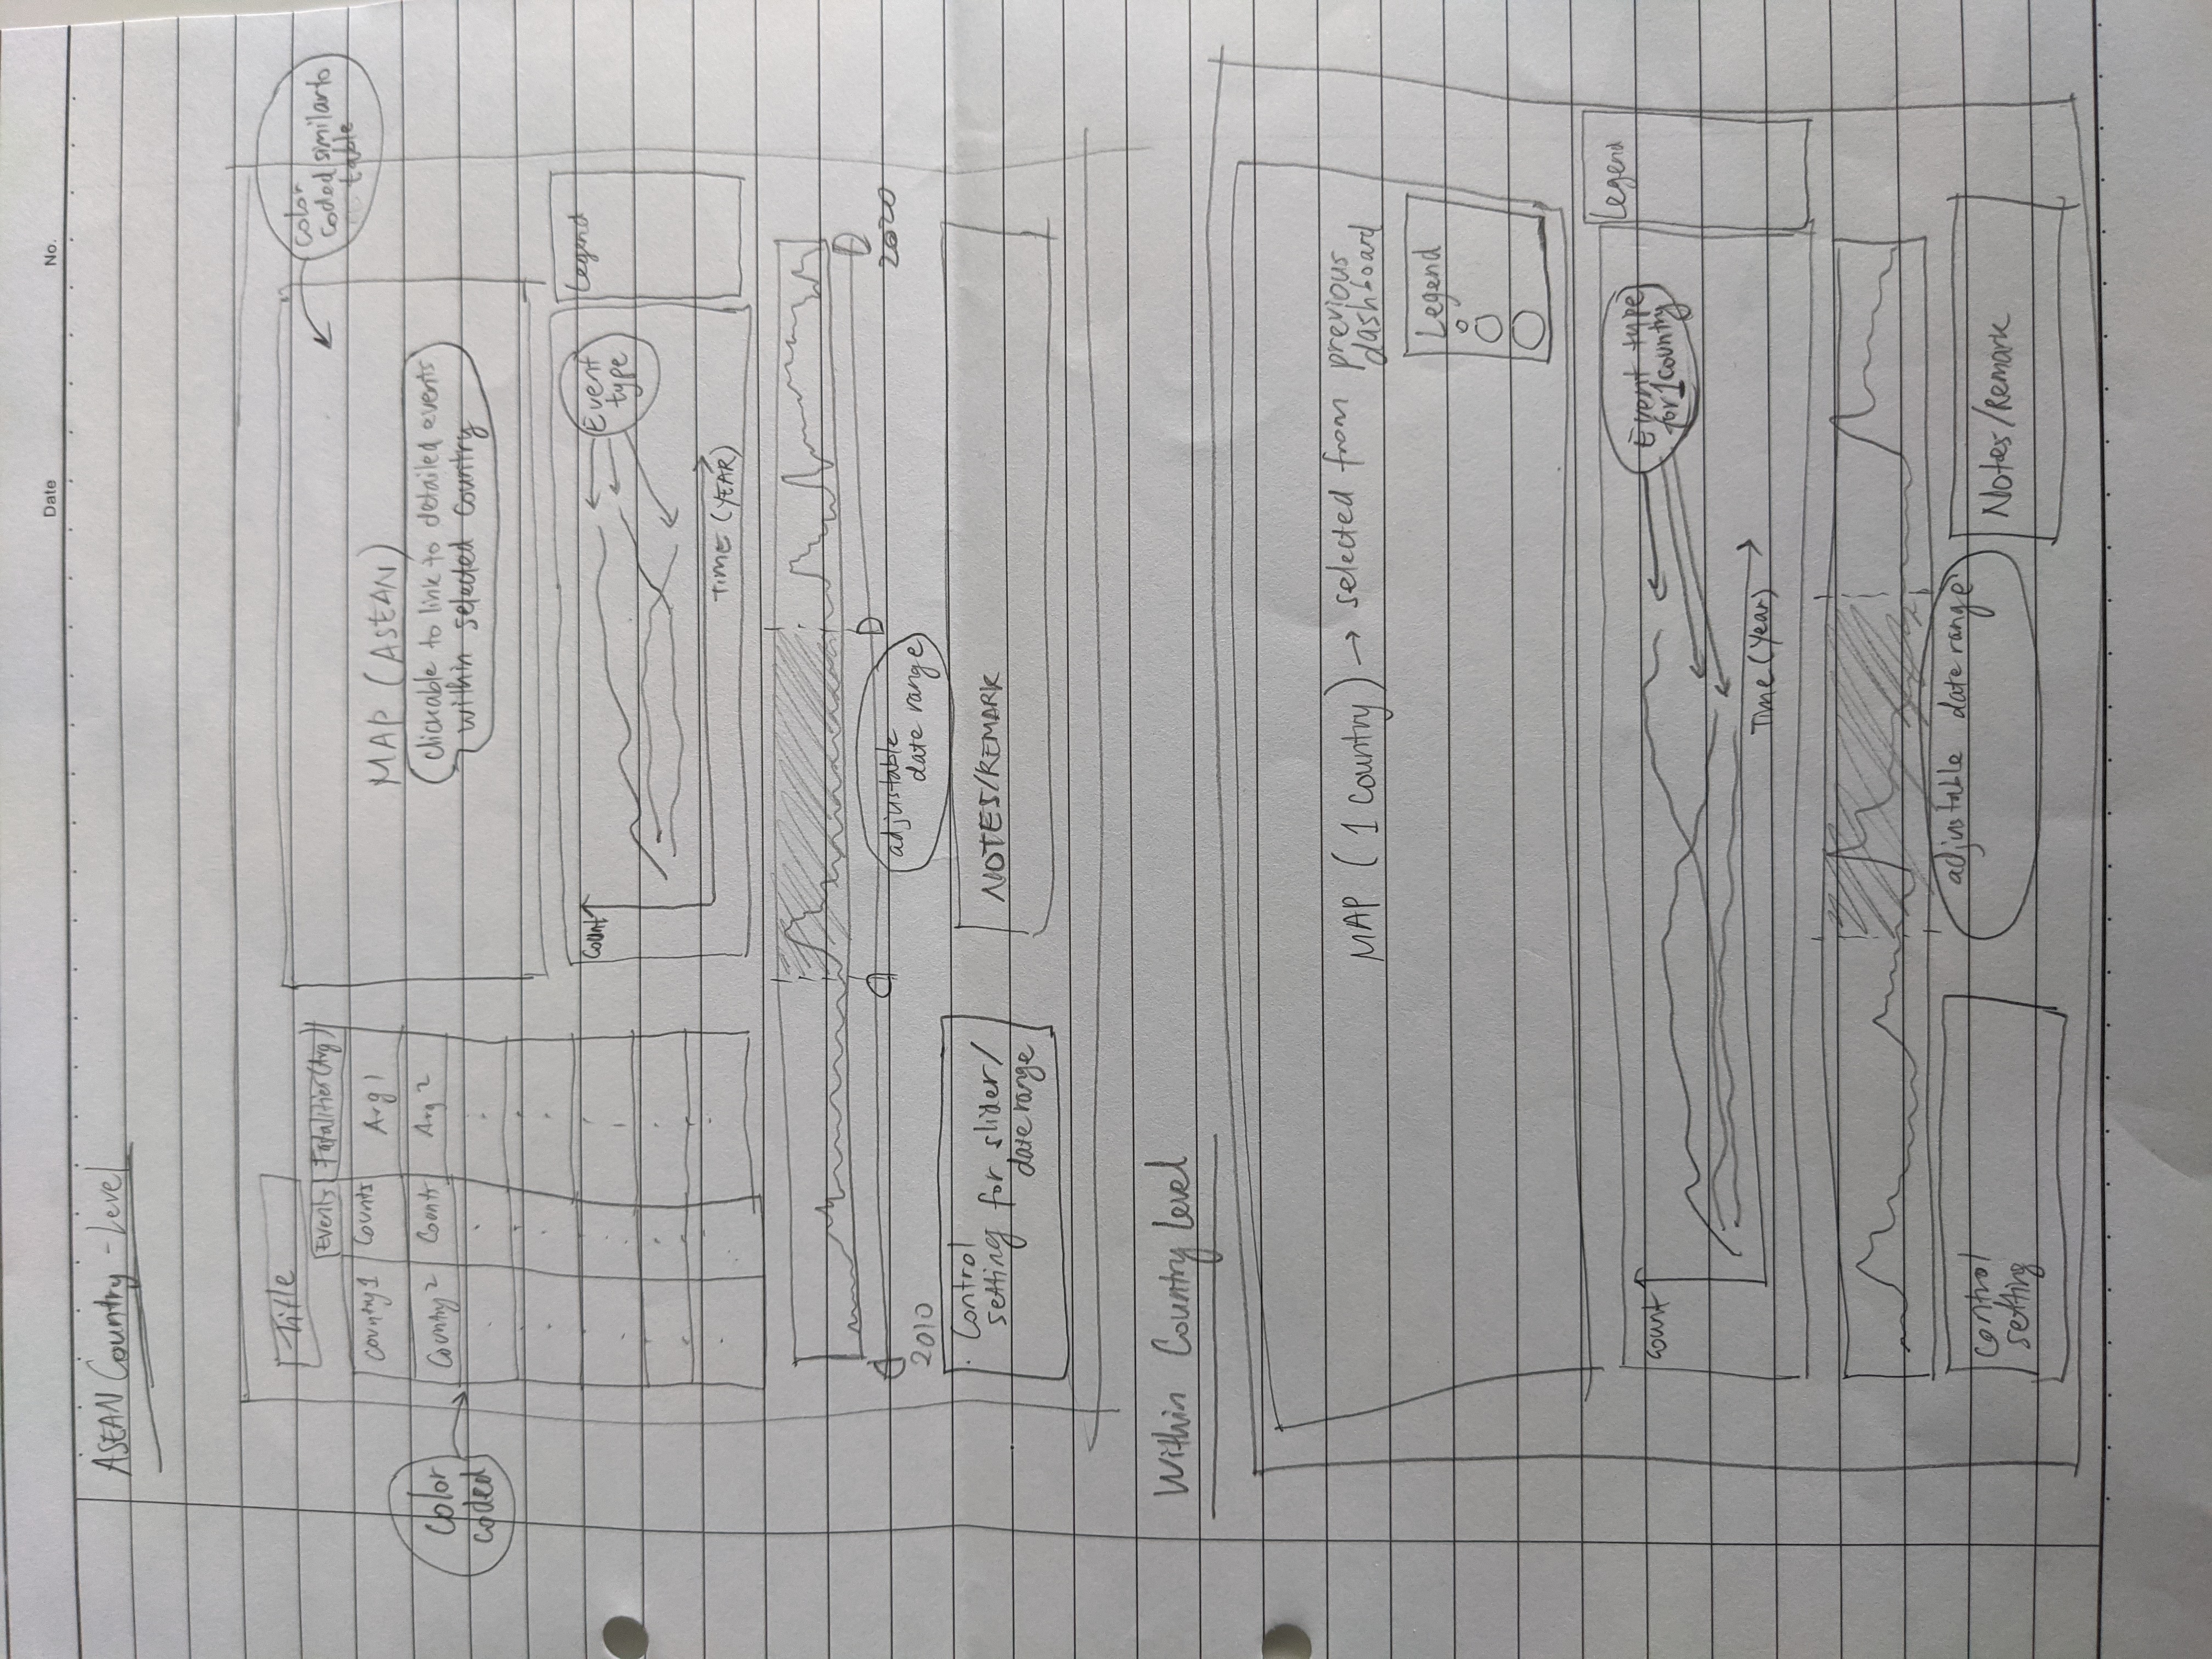 Date
No.
ASEAN Country - Level
Title
Events
Fatalities (Avg)
Country 1
Counts
Avg 1
Country 2
Counts
Avg 2
color
coded
MAP (ASEAN)
clickable to link to detailed events
within selected country
color
coded similar to
table
Count
Event
type
TIME (YEAR)
Legend
2010
adjustable
date range
2020
Control
setting for slider/
date range
NOTES/REMARK
Within Country Level
MAP ( 1 Country ) → selected from previous
dashboard
Legend
Count
Event type
for 1 country
Time (Year)
Legend
adjustable date range
Control
setting
Notes/Remark